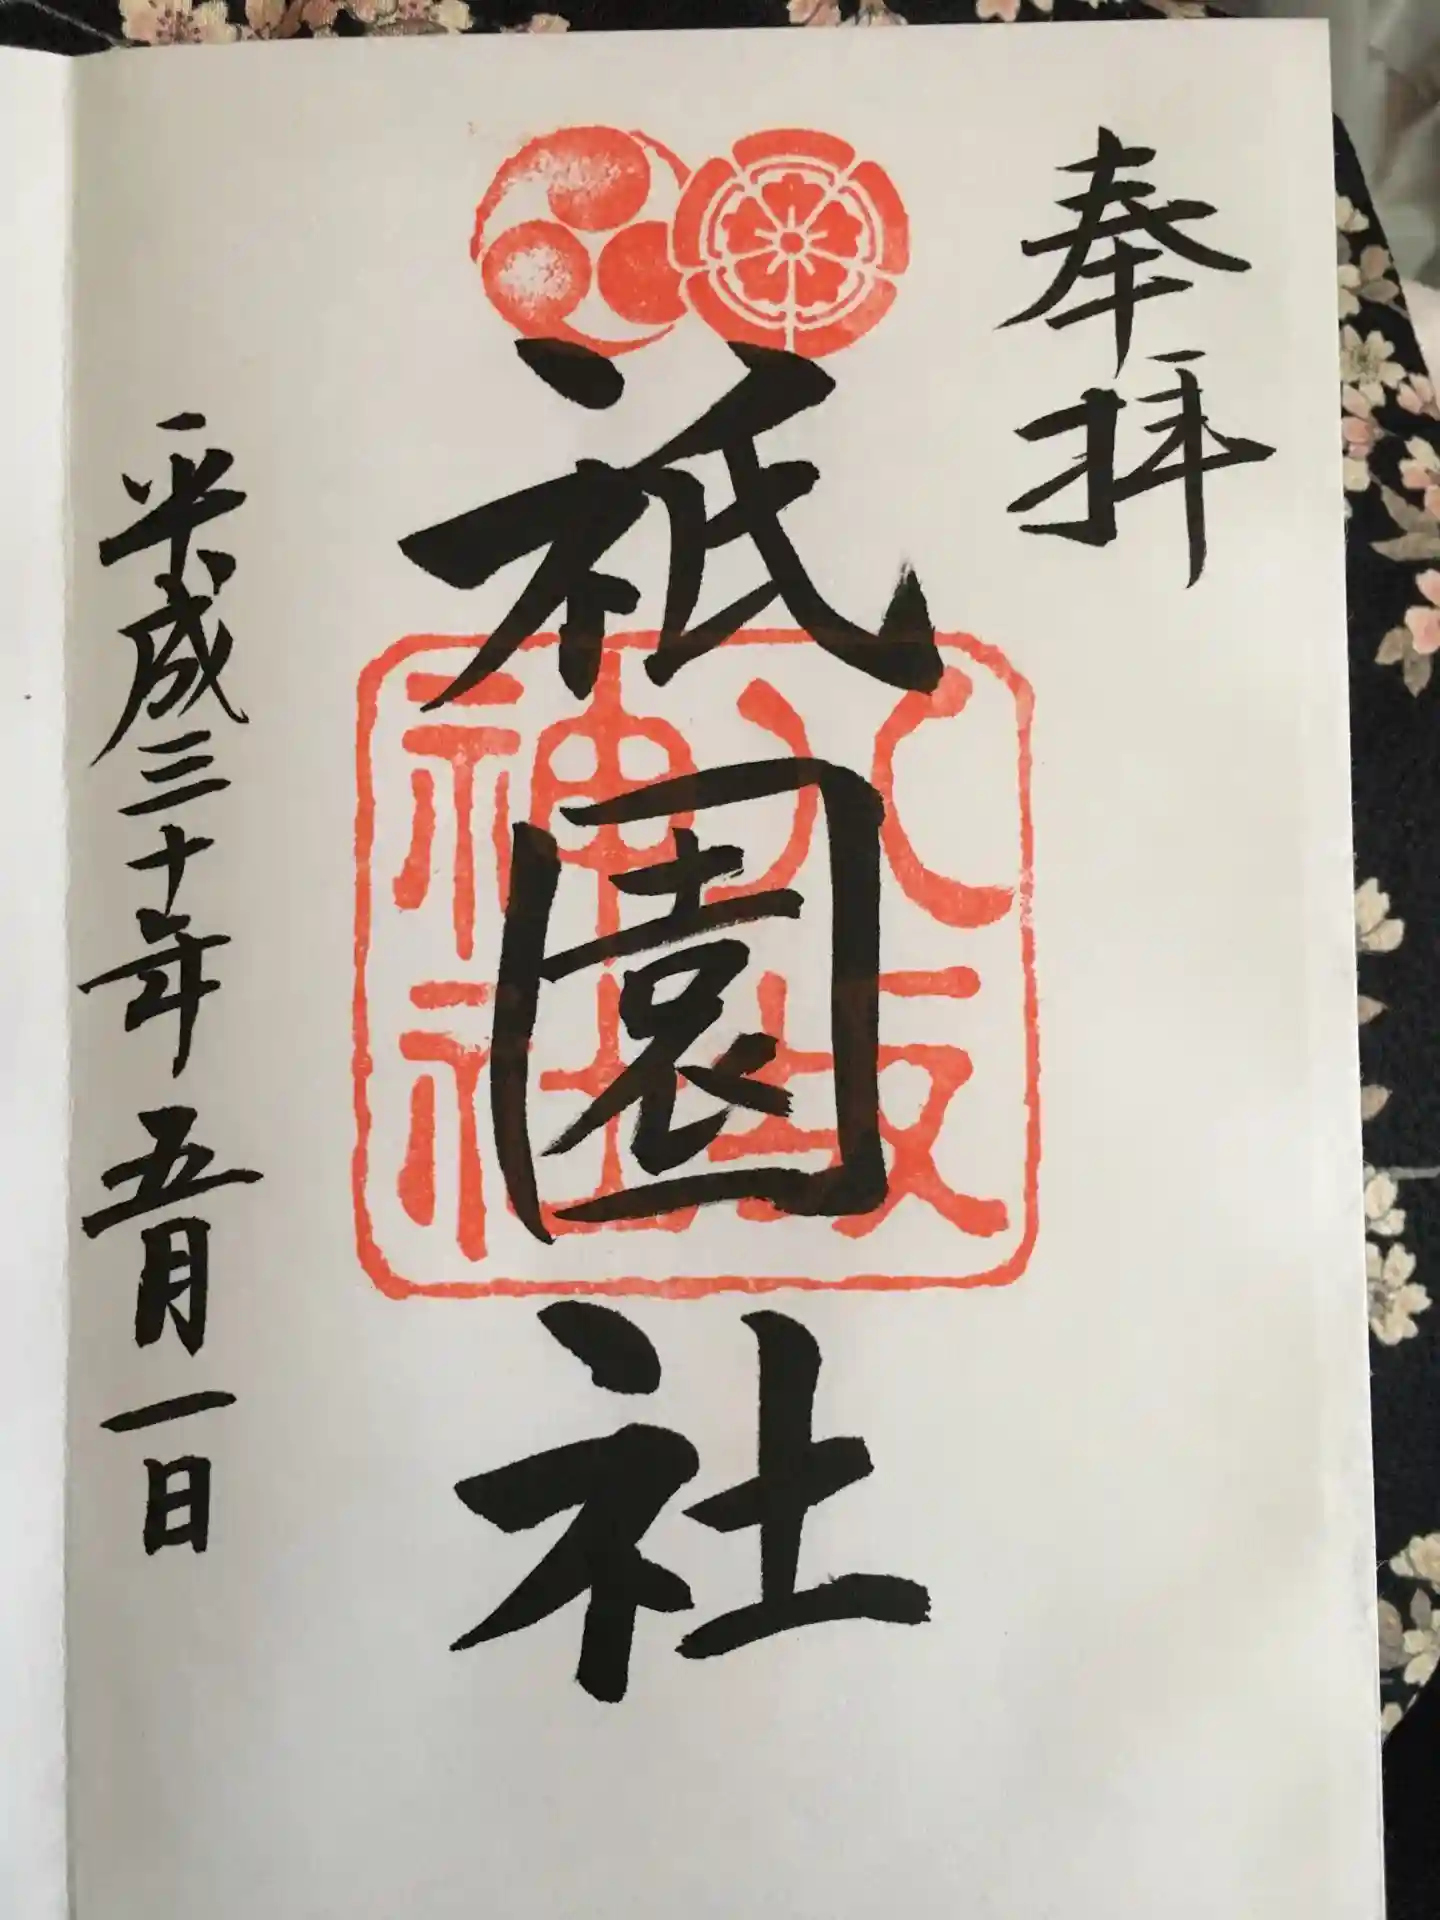 奉拝
祇園社
八坂
神社
平成三十年五月一日